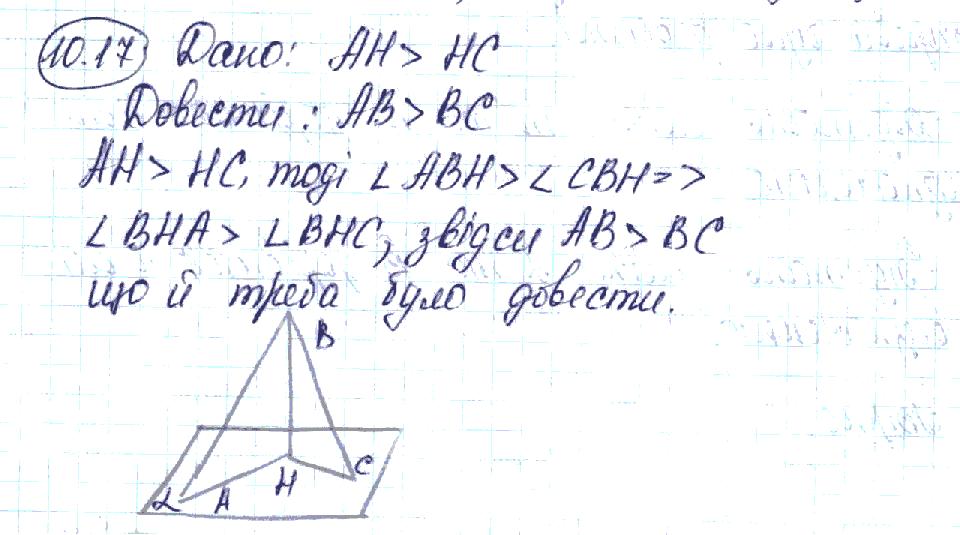 10.17 Дано: AH > HC
Довести: AB > BC
AH > HC, тоді ∠ABH > ∠CBH =>
∠BHA > ∠BHC, звідси AB > BC
що й треба було довести.
B
C
H
A
α